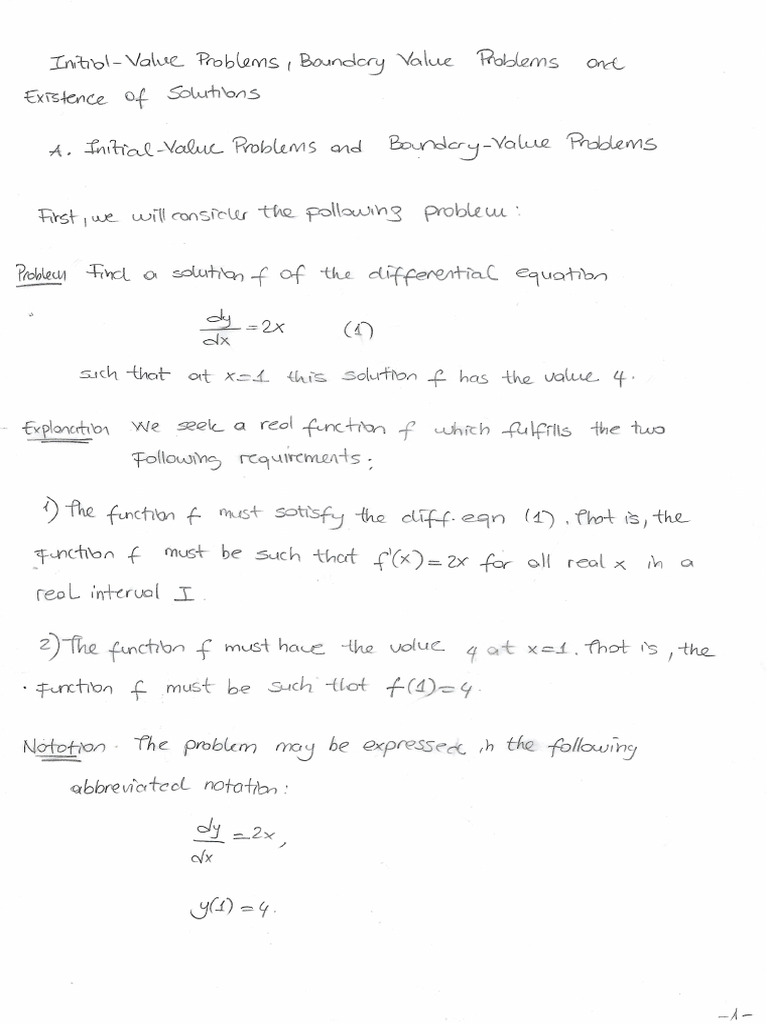 Initial-Value Problems, Boundary Value Problems and
Existence of Solutions
A. Initial-Value Problems and Boundary-Value Problems
First, we will consider the following problem:
Problem Find a solution f of the differential equation
dy/dx = 2x (1)
such that at x=1 this solution f has the value 4.
Explanation We seek a real function f which fulfills the two
following requirements:
1) The function f must satisfy the diff. eqn (1). That is, the
function f must be such that f'(x)=2x for all real x in a
real interval I
2) The function f must have the value 4 at x=1. That is, the
function f must be such that f(1)=4.
Notation. The problem may be expressed in the following
abbreviated notation:
dy/dx = 2x,
y(1) = 4.
-1-